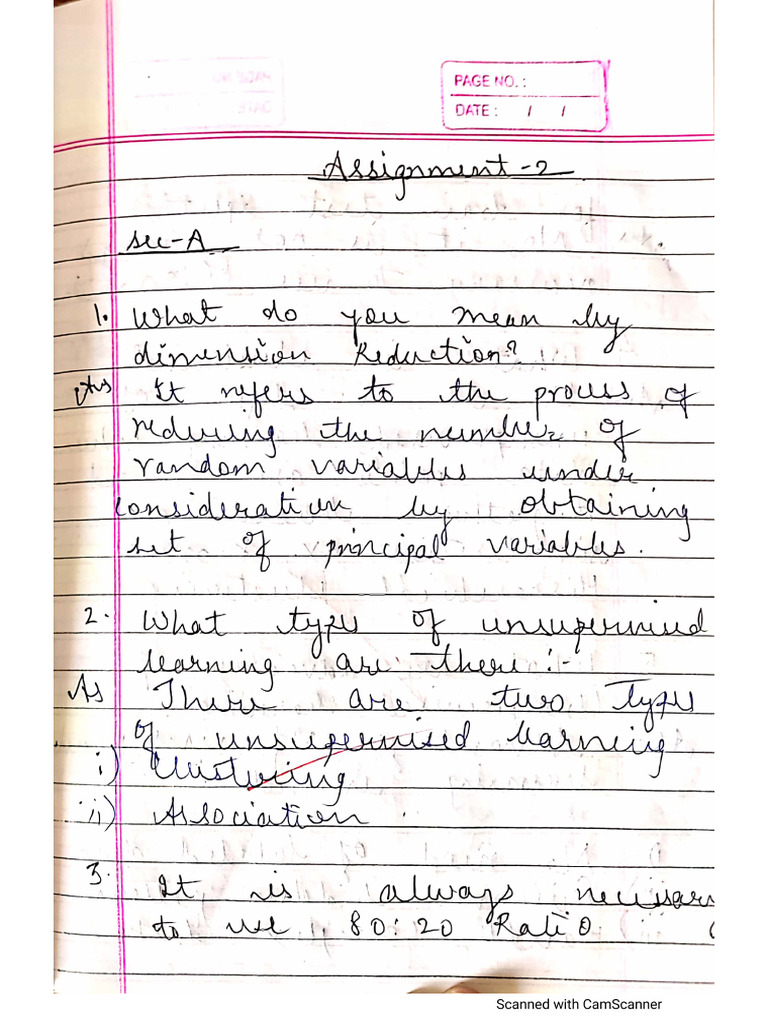 PAGE NO. :
DATE : / /
Assignment -2
Sec-A
1. What do you mean by
dimension Reduction?
Ans It refers to the process of
reducing the number of
random variables under
consideration by obtaining
set of principal variables.
2. What types of unsupervised
learning are there :-
As There are two Types
of unsupervised learning
i) Clustering
ii) Association
3. It is always necessar
to use 80:20 Ratio (
Scanned with CamScanner